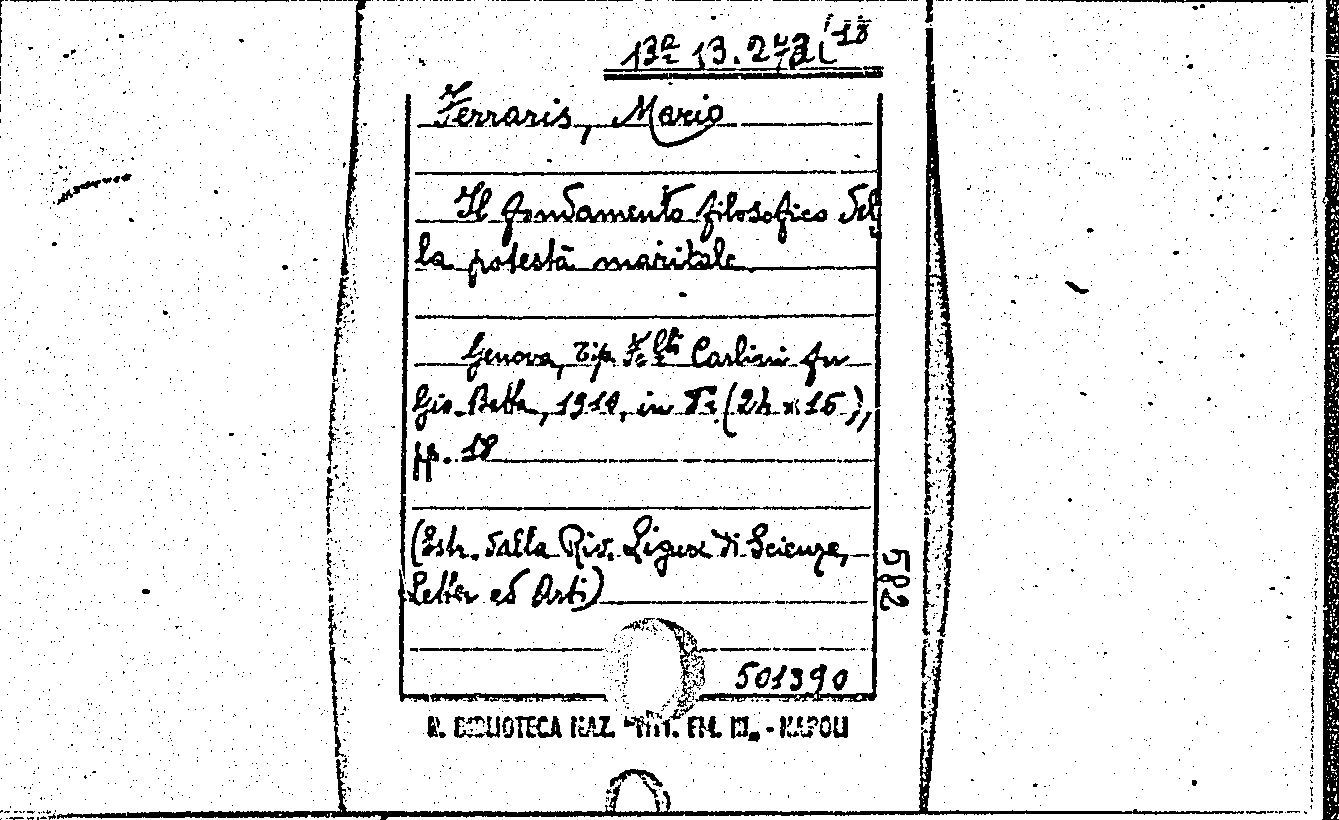 Ferraris, Mario
Il fondamento filosofico del
la potestà maritale
Genova, Tip. F.lli Carlini fu
Gio. Batta, 1910, in 8º (24 x 16),
pp. 18
(Estr. dalla Riv. Ligure di Scienze,
Letter ed Arti)
582
501390
R. BIBLIOTECA NAZ. "VITT. EM. III„ - NAPOLI